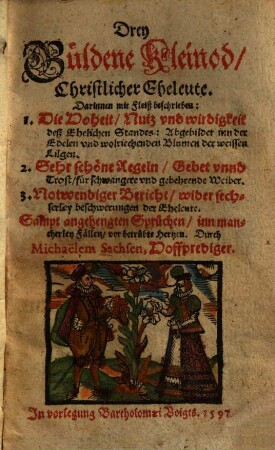 Drey
Güldene Kleinod/
Christlicher Eheleute.
Darinnen mit Fleiß beschrieben:
1. Die Hoheit/ Nutz vnd wirdigkeit
deß Ehelichen Standes: Abgebildet inn der
Edelen vnd wolriechenden Blumen der weissen
Lilgen.
2. Sehr schöne Regeln/ Gebet vnnd
Trost/ für schwangere vnd geberende Weiber.
3. Notwendiger Bericht/ wider sech-
serley beschwerungen der Eheleute.
Sampt angehengten Sprüchen/ inn man-
cherley Fällen/ vor betrübte Hertzen. Durch
Michaëlem Sachsen, Hoffprediger.
In vorlegung Bartholomæi Voigts. 1597